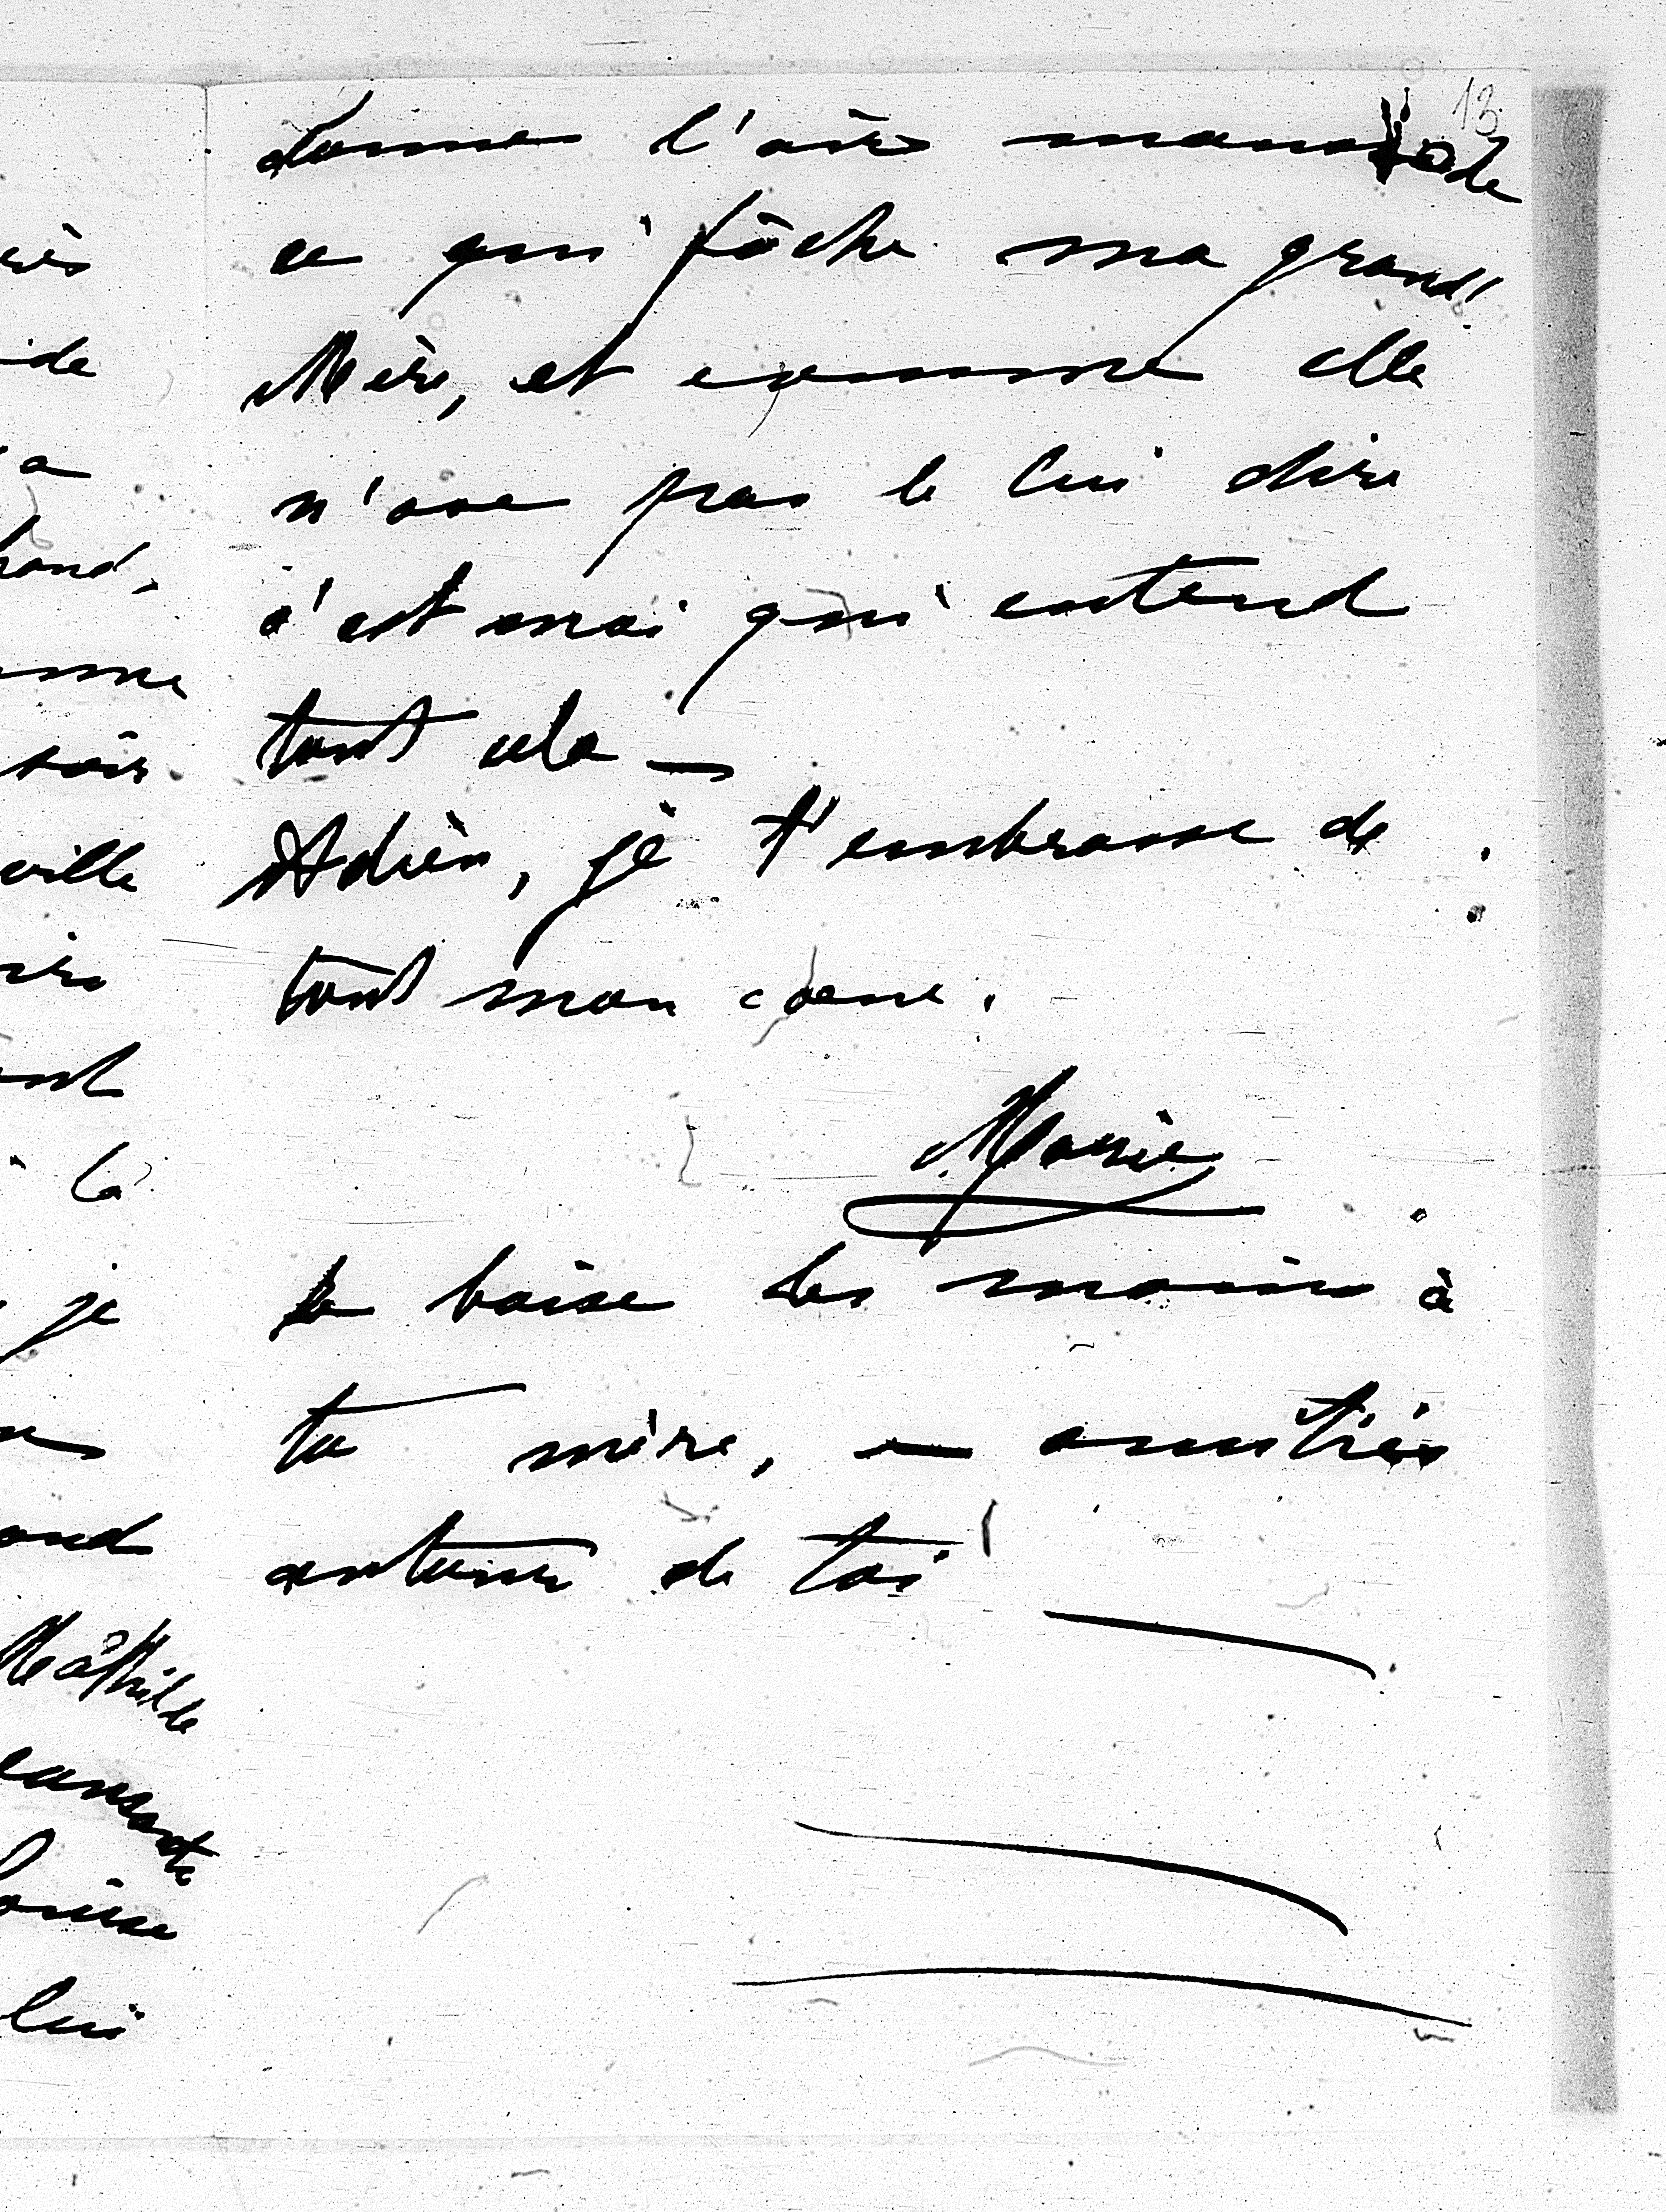 13
donne l'air maussade
ce qui fâche ma grand'
Mère, et comme elle
n'ose pas le lui dire
c'est moi qui entend
tout cela —
Adieu, je t'embrasse de
tout mon cœur.
Marie
Je baise les mains à
ta mère, — amitiés
autour de toi
ville
soir
à la
je
Mathilde
Louise
lui